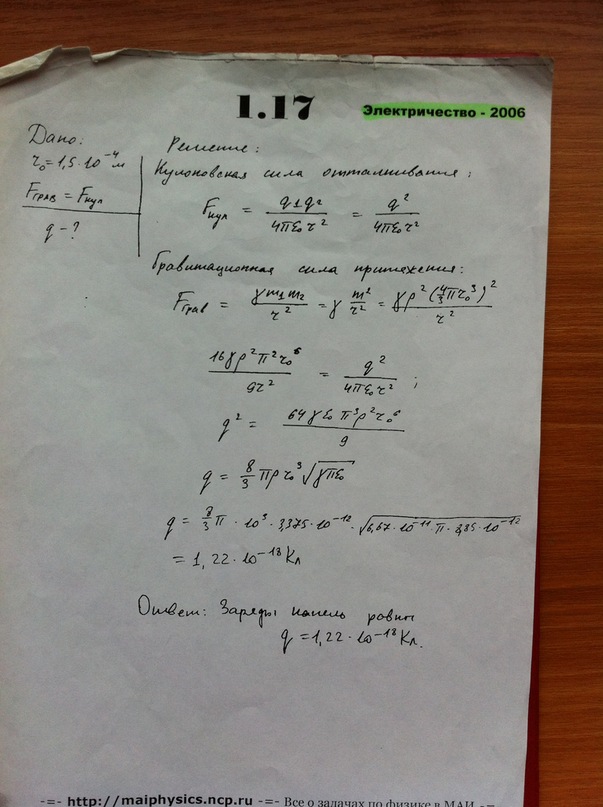 1.17
Электричество - 2006
Дано:
r₀ = 1,5·10⁻⁴ м
Fграв = Fкул
q - ?
Решение:
Кулоновская сила отталкивания:
Fкул = q1q2 / 4πε₀r² = q² / 4πε₀r²
Гравитационная сила притяжения:
Fграв = γm1m2 / r² = γ m² / r² = γρ²(4/3 πr₀³)² / r²
16γρ²π²r₀⁶ / 9r² = q² / 4πε₀r² ;
q² = 64γε₀π³ρ²r₀⁶ / 9
q = 8/3 πρr₀³ √γπε₀
q = 8/3 π · 10³ · 3,375·10⁻¹² · √6,67·10⁻¹¹·π·8,85·10⁻¹²
= 1,22·10⁻¹⁸ Кл
Ответ: Заряды капель равны
q = 1,22·10⁻¹⁸ Кл.
-=- http://maiphysics.ncp.ru -=- Все о задачах по физике в МАИ -=